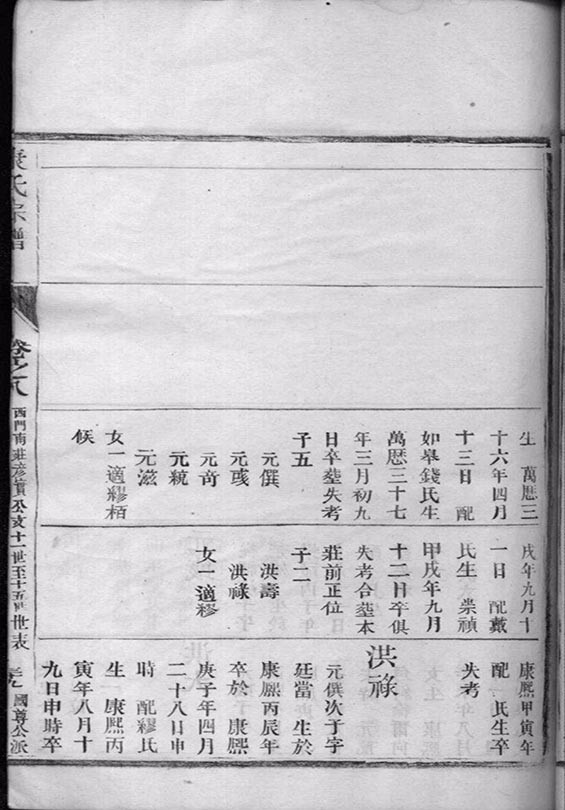 生 萬厯三
十六年四月
十三日 配
如皋錢氏生
萬厯三十七
年三月初九
日卒塟失考
子五
元僎
元彧
元竒
元統
元滋
女一適繆栢
候
戌年九月十
一日 配戴
氏生 崇禎
甲戌年九月
十二日卒俱
失考合塟本
莊前正位
子二
洪壽
洪祿
女一適繆
康熙甲寅年
配 氏生卒
失考
洪祿
元僎次子字
廷當 生於
康熙丙辰年
卒於 康熙
庚子年四月
二十八日申
時 配繆氏
生 康熙丙
寅年八月十
九日申時卒
氏宗譜
卷之八
西門南莊彥實公支十一世至十五世世表
國尊公派